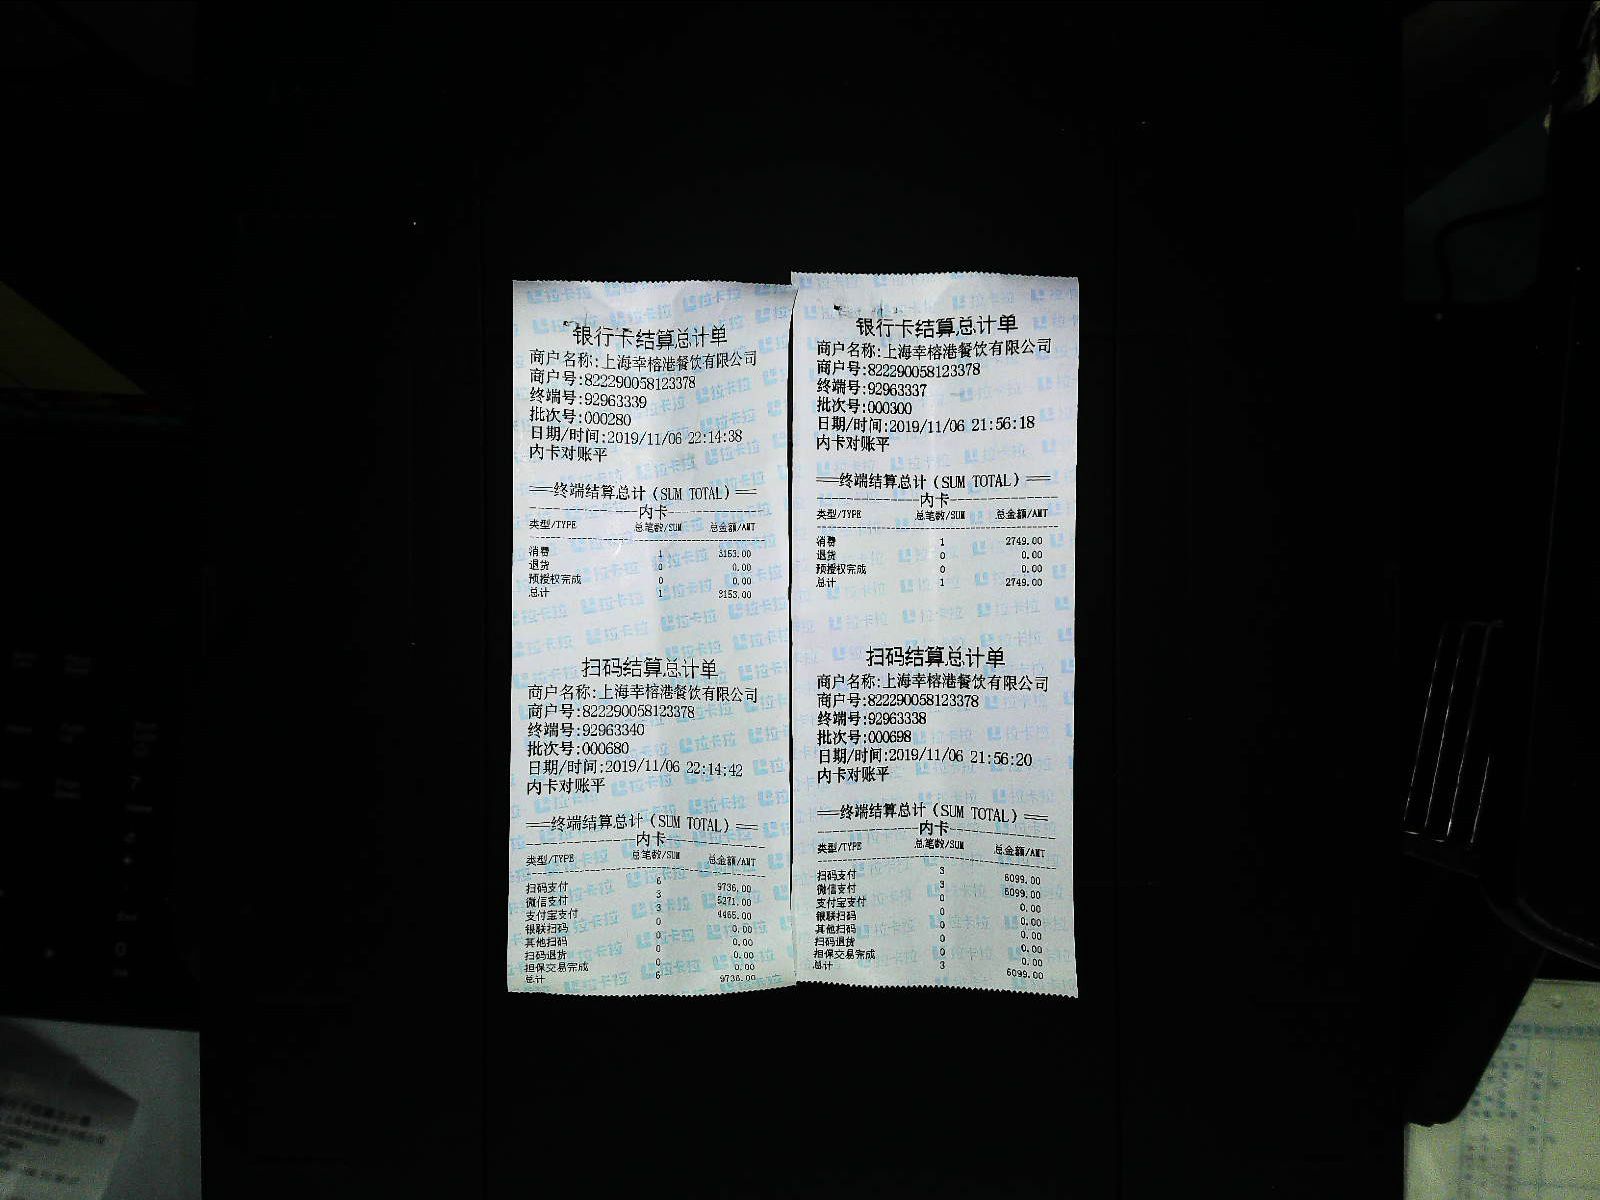 银行卡结算总计单
商户名称:上海幸榕港餐饮有限公司
商户号:822290058123378
终端号:92963339
批次号:000280
日期/时间:2019/11/06 22:14:38
内卡对账平
══终端结算总计(SUM TOTAL)══
内卡
类型/TYPE 总笔数/SUM 总金额/AMT
消费 1 3153.00
退货 0 0.00
预授权完成 0 0.00
总计 1 3153.00
扫码结算总计单
商户名称:上海幸榕港餐饮有限公司
商户号:822290058123378
终端号:92963340
批次号:000680
日期/时间:2019/11/06 22:14:42
内卡对账平
══终端结算总计(SUM TOTAL)══
内卡
类型/TYPE 总笔数/SUM 总金额/AMT
扫码支付 6 9736.00
微信支付 3 5271.00
支付宝支付 3 4465.00
银联扫码 0 0.00
其他扫码 0 0.00
扫码退货 0 0.00
担保交易完成 0 0.00
总计 6 9736.00
银行卡结算总计单
商户名称:上海幸榕港餐饮有限公司
商户号:822290058123378
终端号:92963337
批次号:000300
日期/时间:2019/11/06 21:56:18
内卡对账平
══终端结算总计(SUM TOTAL)══
内卡
类型/TYPE 总笔数/SUM 总金额/AMT
消费 1 2749.00
退货 0 0.00
预授权完成 0 0.00
总计 1 2749.00
扫码结算总计单
商户名称:上海幸榕港餐饮有限公司
商户号:822290058123378
终端号:92963338
批次号:000698
日期/时间:2019/11/06 21:56:20
内卡对账平
══终端结算总计(SUM TOTAL)══
内卡
类型/TYPE 总笔数/SUM 总金额/AMT
扫码支付 3 6099.00
微信支付 3 6099.00
支付宝支付 0 0.00
银联扫码 0 0.00
其他扫码 0 0.00
扫码退货 0 0.00
担保交易完成 0 0.00
总计 3 6099.00